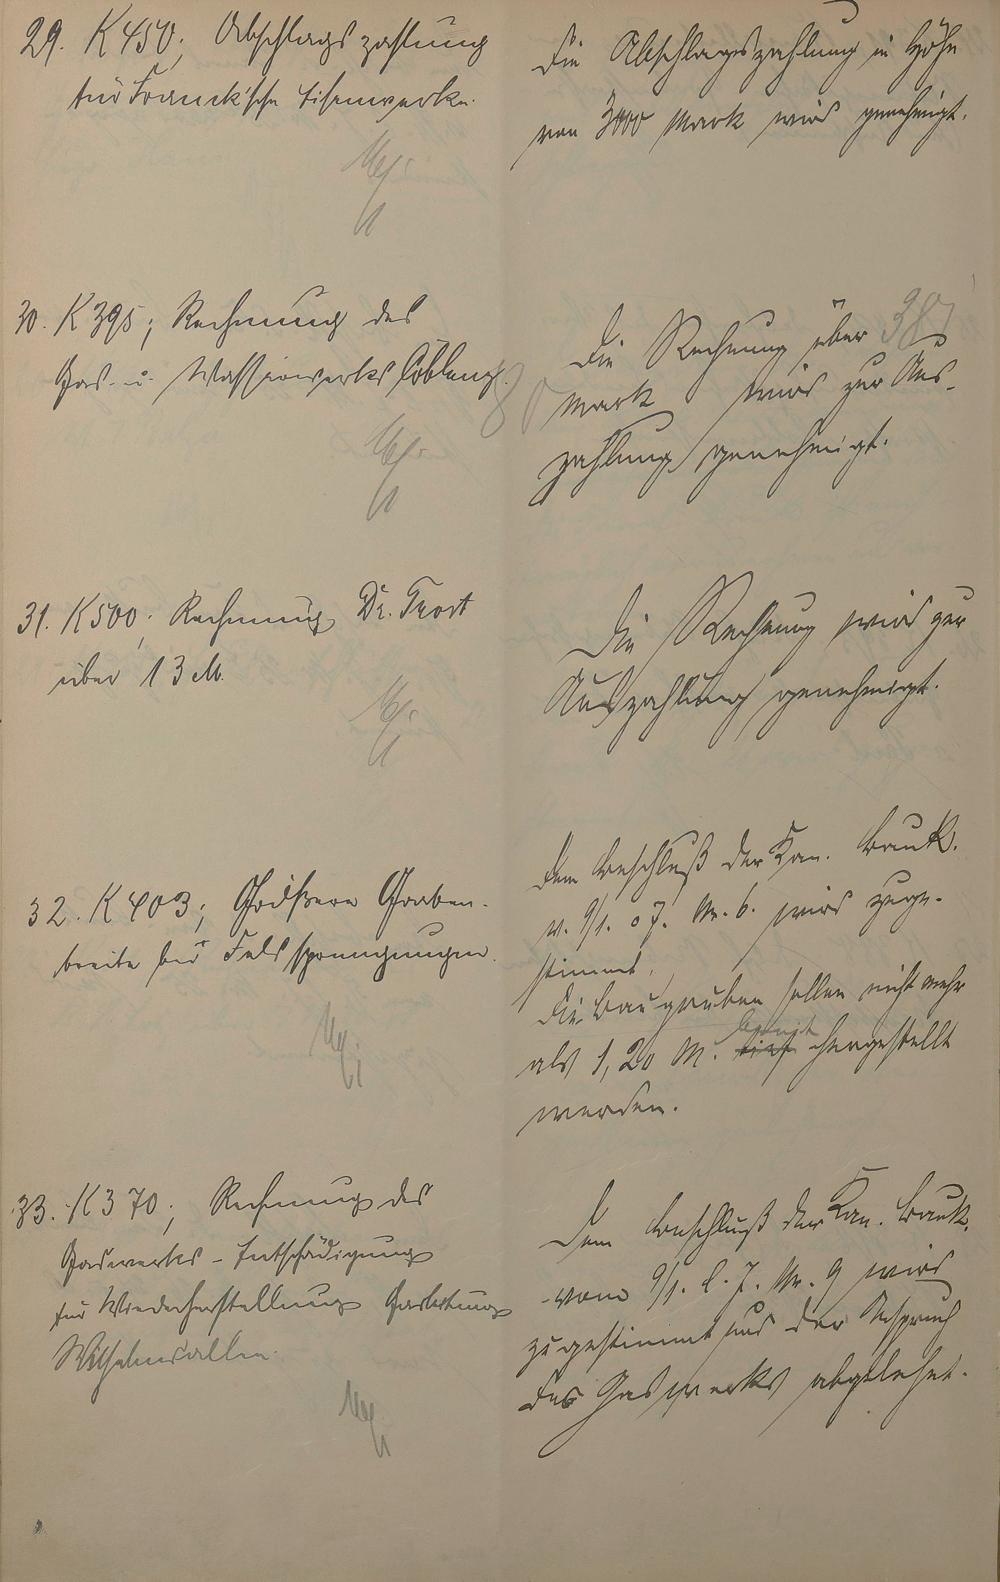 29. K 450; Abschlagszahlung
für Franck'sche Eisenwerke.
Die Abschlagszahlung in Höhe
von 3000 Mark wird genehmigt.
30. K 395; Rechnung des
Gas- u. Wasserwerks Coblenz.
Die Rechnung über 387
Mark wird zur Aus-
zahlung genehmigt.
31. K 500; Rechnung Dr. Trost
über 13 M.
Die Rechnung wird zur
Auszahlung genehmigt.
32. K 403; Größere Graben-
breite bei Felssprengungen.
Dem Beschluß der Kan. Bauk.
v. 9/1. 07. Nr. 6. wird zuge-
stimmt.
Die Baugruben sollen nicht mehr
als 1,20 M. breit hergestellt
werden.
33. K 370; Rechnung des
Gaswerks - Entschädigung
für Wiederherstellung Gasleitung
Wilhelmsallee.
Dem Beschluß der Kan. Bauk.
vom 9/1. l. J. Nr. 9 wird
zugestimmt und der Anspruch
des Gaswerks abgelehnt.